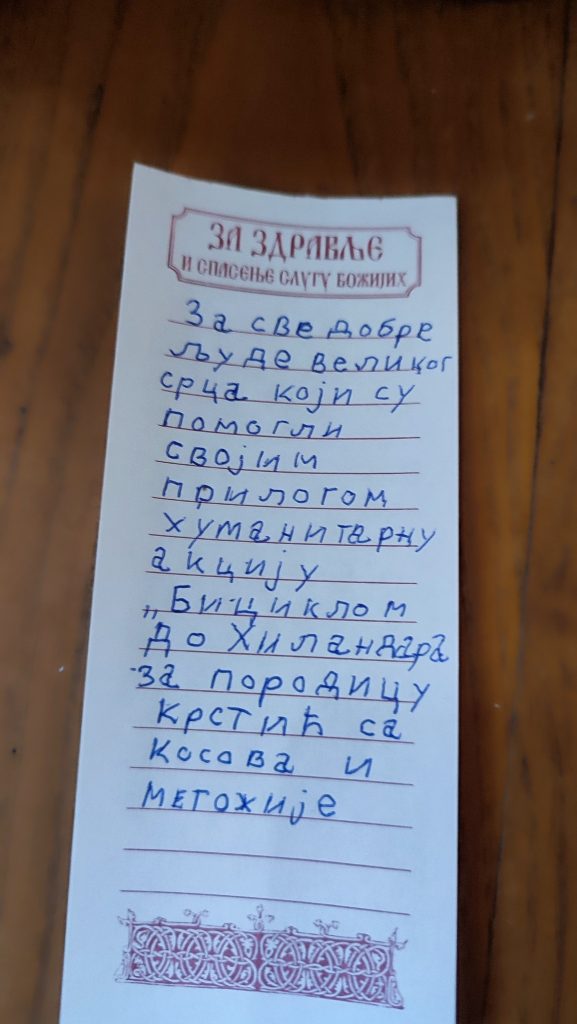 ЗА ЗДРАВЉЕ
И СПАСЕЊЕ СЛУГУ БОЖИЈИХ
За све добре
људе великог
срца који су
помогли
својим
прилогом
хуманитарну
акцију
„Бициклом
до Хиландара
за породицу
Крстић са
Косова и
метохије